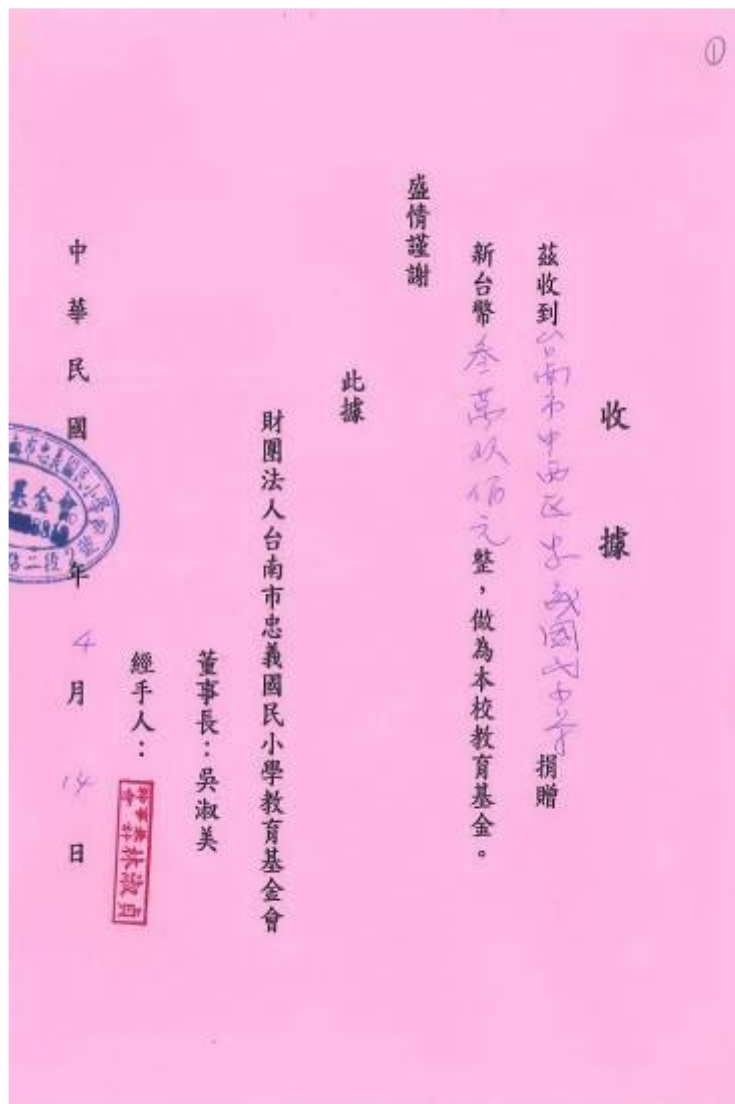 ①
收據
茲收到台南市中西區忠義國民小學捐贈
新台幣叁萬玖佰元整，做為本校教育基金。
盛情謹謝
此據
財團法人台南市忠義國民小學教育基金會
董事長：吳淑美
經手人：
林淑貞
中華民國年4月14日
基金會